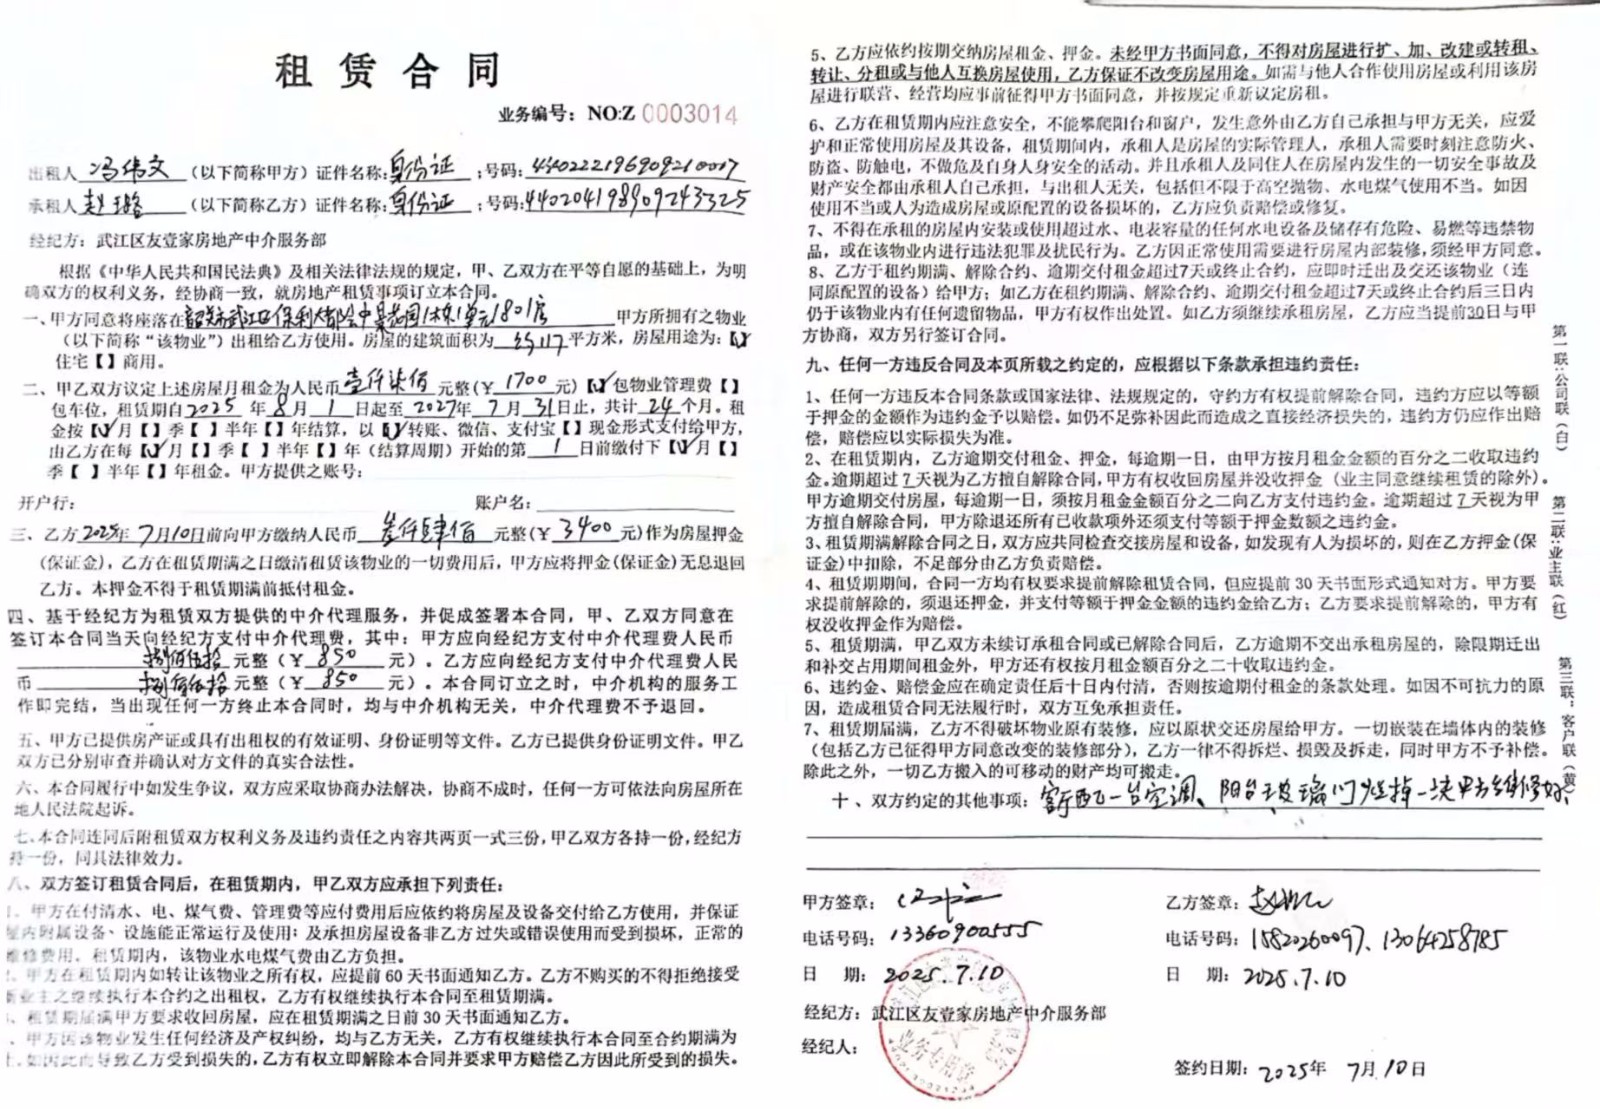 租赁合同
业务编号：NO:Z 0003014
出租人 冯伟文 （以下简称甲方）证件名称:身份证 ;号码:440222196909210007
承租人 赵璐 （以下简称乙方）证件名称:身份证 ;号码:440204198909243325
经纪方：武江区友壹家房地产中介服务部
根据《中华人民共和国民法典》及相关法律法规的规定，甲、乙双方在平等自愿的基础上，为明
确双方的权利义务，经协商一致，就房地产租赁事项订立本合同。
一、甲方同意将座落在韶关市武江区保利大都会中景花园1栋1单元1801房 甲方所拥有之物业
（以下简称“该物业”）出租给乙方使用。房屋的建筑面积为 平方米，房屋用途为：【✓】
住宅【 】商用。
二、甲乙双方议定上述房屋月租金为人民币 壹仟柒佰 元整(￥ 1700 元)【✓】包物业管理费【 】
包车位，租赁期自2025 年 8月 1 日起至 2027年 7 月 31日止，共计 24 个月。租
金按【✓】月【 】季【 】半年【 】年结算，以【✓】转账、微信、支付宝【 】现金形式支付给甲方，
由乙方在每【✓】月【 】季【 】半年【 】年（结算周期）开始的第 1 日前缴付下【✓】月【 】
季【 】半年【 】年租金。甲方提供之账号：
开户行： 账户名：
三、乙方2025年 7月10日前向甲方缴纳人民币 叁仟肆佰 元整(￥ 3400 元)作为房屋押金
(保证金)，乙方在租赁期满之日缴清租赁该物业的一切费用后，甲方应将押金(保证金)无息退回
乙方。本押金不得于租赁期满前抵付租金。
四、基于经纪方为租赁双方提供的中介代理服务，并促成签署本合同，甲、乙双方同意在
签订本合同当天向经纪方支付中介代理费，其中：甲方应向经纪方支付中介代理费人民币
捌佰伍拾 元整（￥ 850 元）。乙方应向经纪方支付中介代理费人民
币 捌佰伍拾 元整（￥ 850 元）。本合同订立之时，中介机构的服务工
作即完结，当出现任何一方终止本合同时，均与中介机构无关，中介代理费不予退回。
五、甲方已提供房产证或具有出租权的有效证明、身份证明等文件。乙方已提供身份证明文件。甲乙
双方已分别审查并确认对方文件的真实合法性。
六、本合同履行中如发生争议，双方应采取协商办法解决，协商不成时，任何一方可依法向房屋所在
地人民法院起诉。
七、本合同连同后附租赁双方权利义务及违约责任之内容共两页一式三份，甲乙双方各持一份，经纪方
持一份，同具法律效力。
八、双方签订租赁合同后，在租赁期内，甲乙双方应承担下列责任：
1、甲方在付清水、电、煤气费、管理费等应付费用后应依约将房屋及设备交付给乙方使用，并保证
屋内附属设备、设施能正常运行及使用；及承担房屋设备非乙方过失或错误使用而受到损坏，正常的
维修费用。租赁期内，该物业水电煤气费由乙方负担。
2、甲方在租赁期内如转让该物业之所有权，应提前60天书面通知乙方。乙方不购买的不得拒绝接受
新业主之继续执行本合约之出租权，乙方有权继续执行本合同至租赁期满。
3、租赁期届满甲方要求收回房屋，应在租赁期满之日前30天书面通知乙方。
4、甲方因该物业发生任何经济及产权纠纷，均与乙方无关，乙方有权继续执行本合同至合约期满为
止。如因此而导致乙方受到损失的，乙方有权立即解除本合同并要求甲方赔偿乙方因此所受到的损失。
5、乙方应依约按期交纳房屋租金、押金。未经甲方书面同意，不得对房屋进行扩、加、改建或转租、
转让、分租或与他人互换房屋使用，乙方保证不改变房屋用途。如需与他人合作使用房屋或利用该房
屋进行联营、经营均应事前征得甲方书面同意，并按规定重新议定房租。
6、乙方在租赁期内应注意安全，不能攀爬阳台和窗户，发生意外由乙方自己承担与甲方无关，应爱
护和正常使用房屋及其设备，租赁期间内，承租人是房屋的实际管理人，承租人需要时刻注意防火、
防盗、防触电，不做危及自身人身安全的活动。并且承租人及同住人在房屋内发生的一切安全事故及
财产安全都由承租人自己承担，与出租人无关，包括但不限于高空抛物、水电煤气使用不当。如因
使用不当或人为造成房屋或原配置的设备损坏的，乙方应负责赔偿或修复。
7、不得在承租的房屋内安装或使用超过水、电表容量的任何水电设备及储存有危险、易燃等违禁物
品，或在该物业内进行违法犯罪及扰民行为。乙方因正常使用需要进行房屋内部装修，须经甲方同意。
8、乙方于租约期满、解除合约、逾期交付租金超过7天或终止合约，应即时迁出及交还该物业（连
同原配置的设备）给甲方；如乙方在租约期满、解除合约、逾期交付租金超过7天或终止合约后三日内
仍于该物业内有任何遗留物品，甲方有权作出处置。如乙方须继续承租房屋，乙方应当提前30日与甲
方协商，双方另行签订合同。
九、任何一方违反合同及本页所载之约定的，应根据以下条款承担违约责任：
1、任何一方违反本合同条款或国家法律、法规规定的，守约方有权提前解除合同，违约方应以等额
于押金的金额作为违约金予以赔偿。如仍不足弥补因此而造成之直接经济损失的，违约方仍应作出赔
偿，赔偿应以实际损失为准。
2、在租赁期内，乙方逾期交付租金、押金，每逾期一日，由甲方按月租金金额的百分之二收取违约
金。逾期超过7天视为乙方擅自解除合同，甲方有权收回房屋并没收押金（业主同意继续租赁的除外）。
甲方逾期交付房屋，每逾期一日，须按月租金金额百分之二向乙方支付违约金。逾期超过7天视为甲
方擅自解除合同，甲方除退还所有已收款项外还须支付等额于押金数额之违约金。
3、租赁期满解除合同之日，双方应共同检查交接房屋和设备，如发现有人为损坏的，则在乙方押金(保
证金)中扣除，不足部分由乙方负责赔偿。
4、租赁期期间，合同一方均有权要求提前解除租赁合同，但应提前30天书面形式通知对方。甲方要
求提前解除的，须退还押金，并支付等额于押金金额的违约金给乙方；乙方要求提前解除的，甲方有
权没收押金作为赔偿。
5、租赁期满，甲乙双方未续订承租合同或已解除合同后，乙方逾期不交出承租房屋的，除限期迁出
和补交占用期间租金外，甲方还有权按月租金额百分之二十收取违约金。
6、违约金、赔偿金应在确定责任后十日内付清，否则按逾期付租金的条款处理。如因不可抗力的原
因，造成租赁合同无法履行时，双方互免承担责任。
7、租赁期届满，乙方不得破坏物业原有装修，应以原状交还房屋给甲方。一切嵌装在墙体内的装修
（包括乙方已征得甲方同意改变的装修部分），乙方一律不得拆烂、损毁及拆走，同时甲方不予补偿。
除此之外，一切乙方搬入的可移动的财产均可搬走。
十、双方约定的其他事项：客厅配一台空调、阳台玻璃门烂掉一块甲方维修好，
甲方签章：
电话号码：13360900555
日 期：2025.7.10
经纪方：武江区友壹家房地产中介服务部
经纪人：
乙方签章：
电话号码：15820260097、13064258785
日 期：2025.7.10
签约日期：2025年 7月10日
业务专用章
第一联：公司联（白）
第二联：业主联（红）
第三联：客户联（黄）